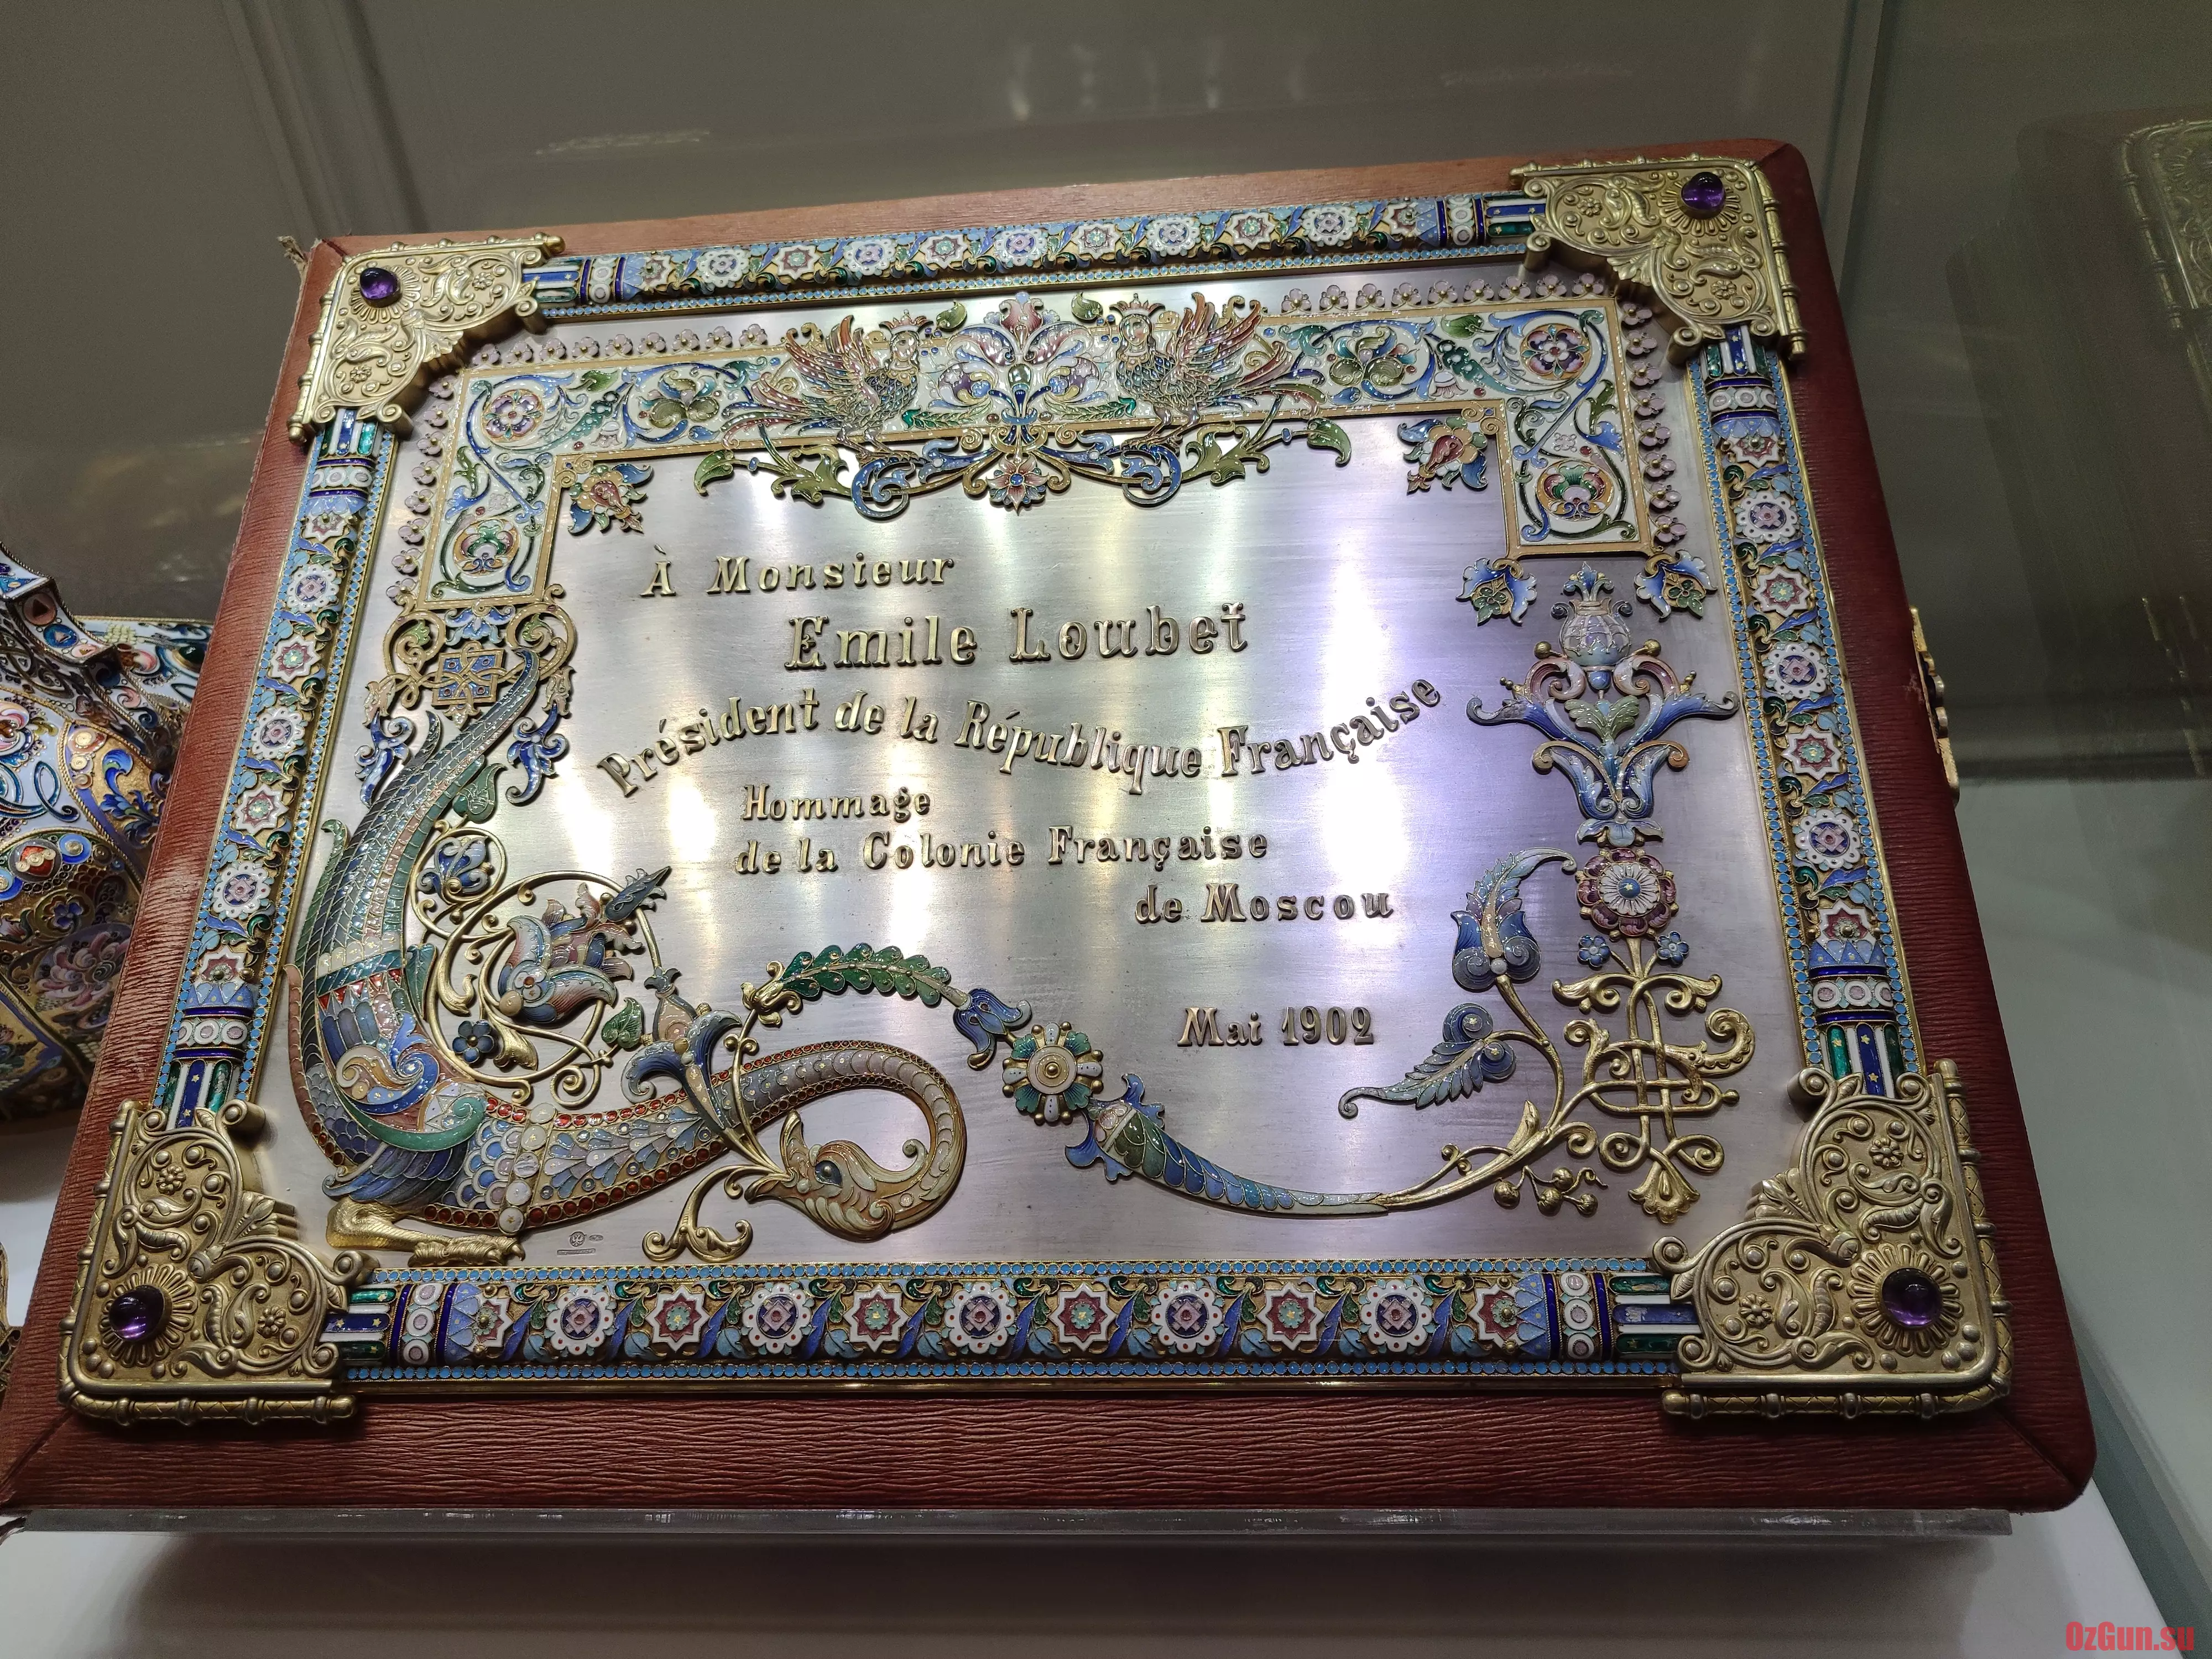 À Monsieur
Emile Loubet
Président de la République Française
Hommage
de la Colonie Française
de Moscou
Mai 1902
OzGun.su